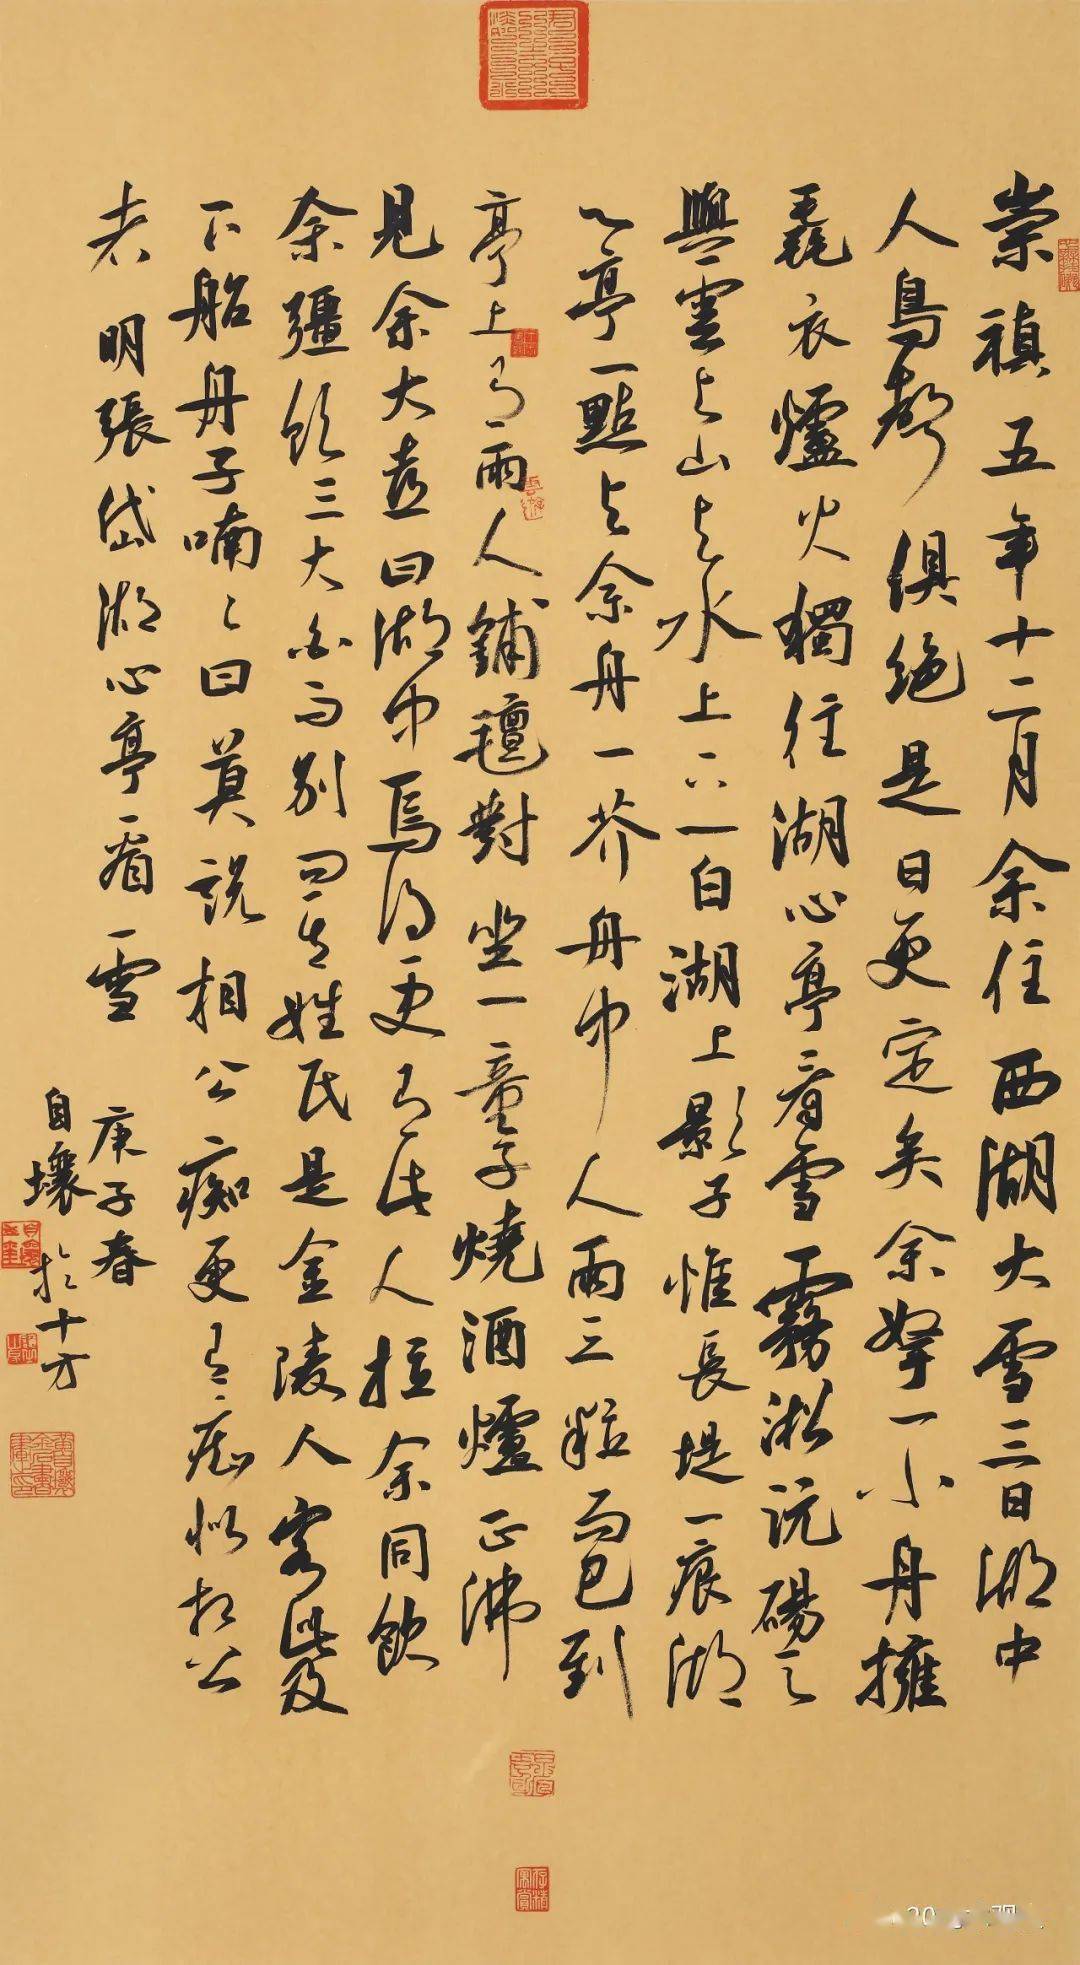 崇禎五年十二月余住西湖大雪三日湖中
人鳥聲俱絶是日更定矣余拏一小舟擁
毳衣爐火獨往湖心亭看雪霧淞沆碭天
與雲与山与水上下一白湖上影子惟長堤一痕湖
心亭一點与余舟一芥舟中人兩三粒而已到
亭上有兩人鋪氈對坐一童子燒酒爐正沸
見余大喜曰湖中焉得更有此人拉余同飲
余彊飲三大白而别問其姓氏是金陵人客此及
下船舟子喃々曰莫說相公痴更有痴似相公
者 明張岱湖心亭看雪
庚子春
自壤於十方